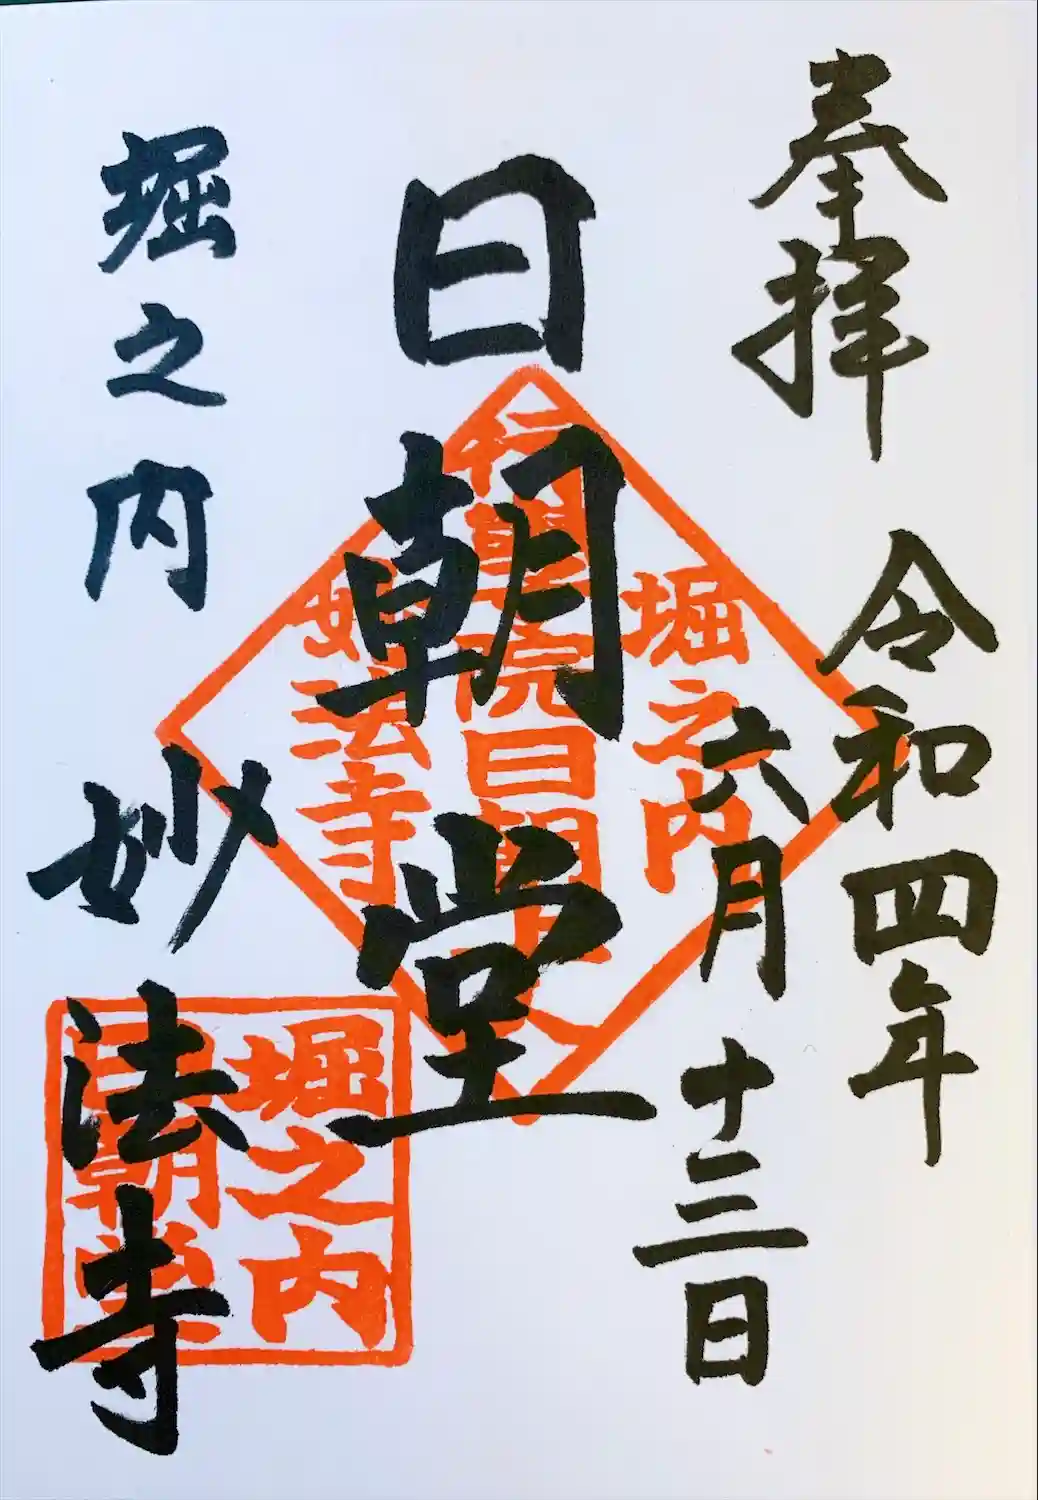 奉拝
令和四年
六月十三日
日朝堂
堀之内
妙法寺
堀之内
行學院日朝
妙法寺
堀之内
日朝堂